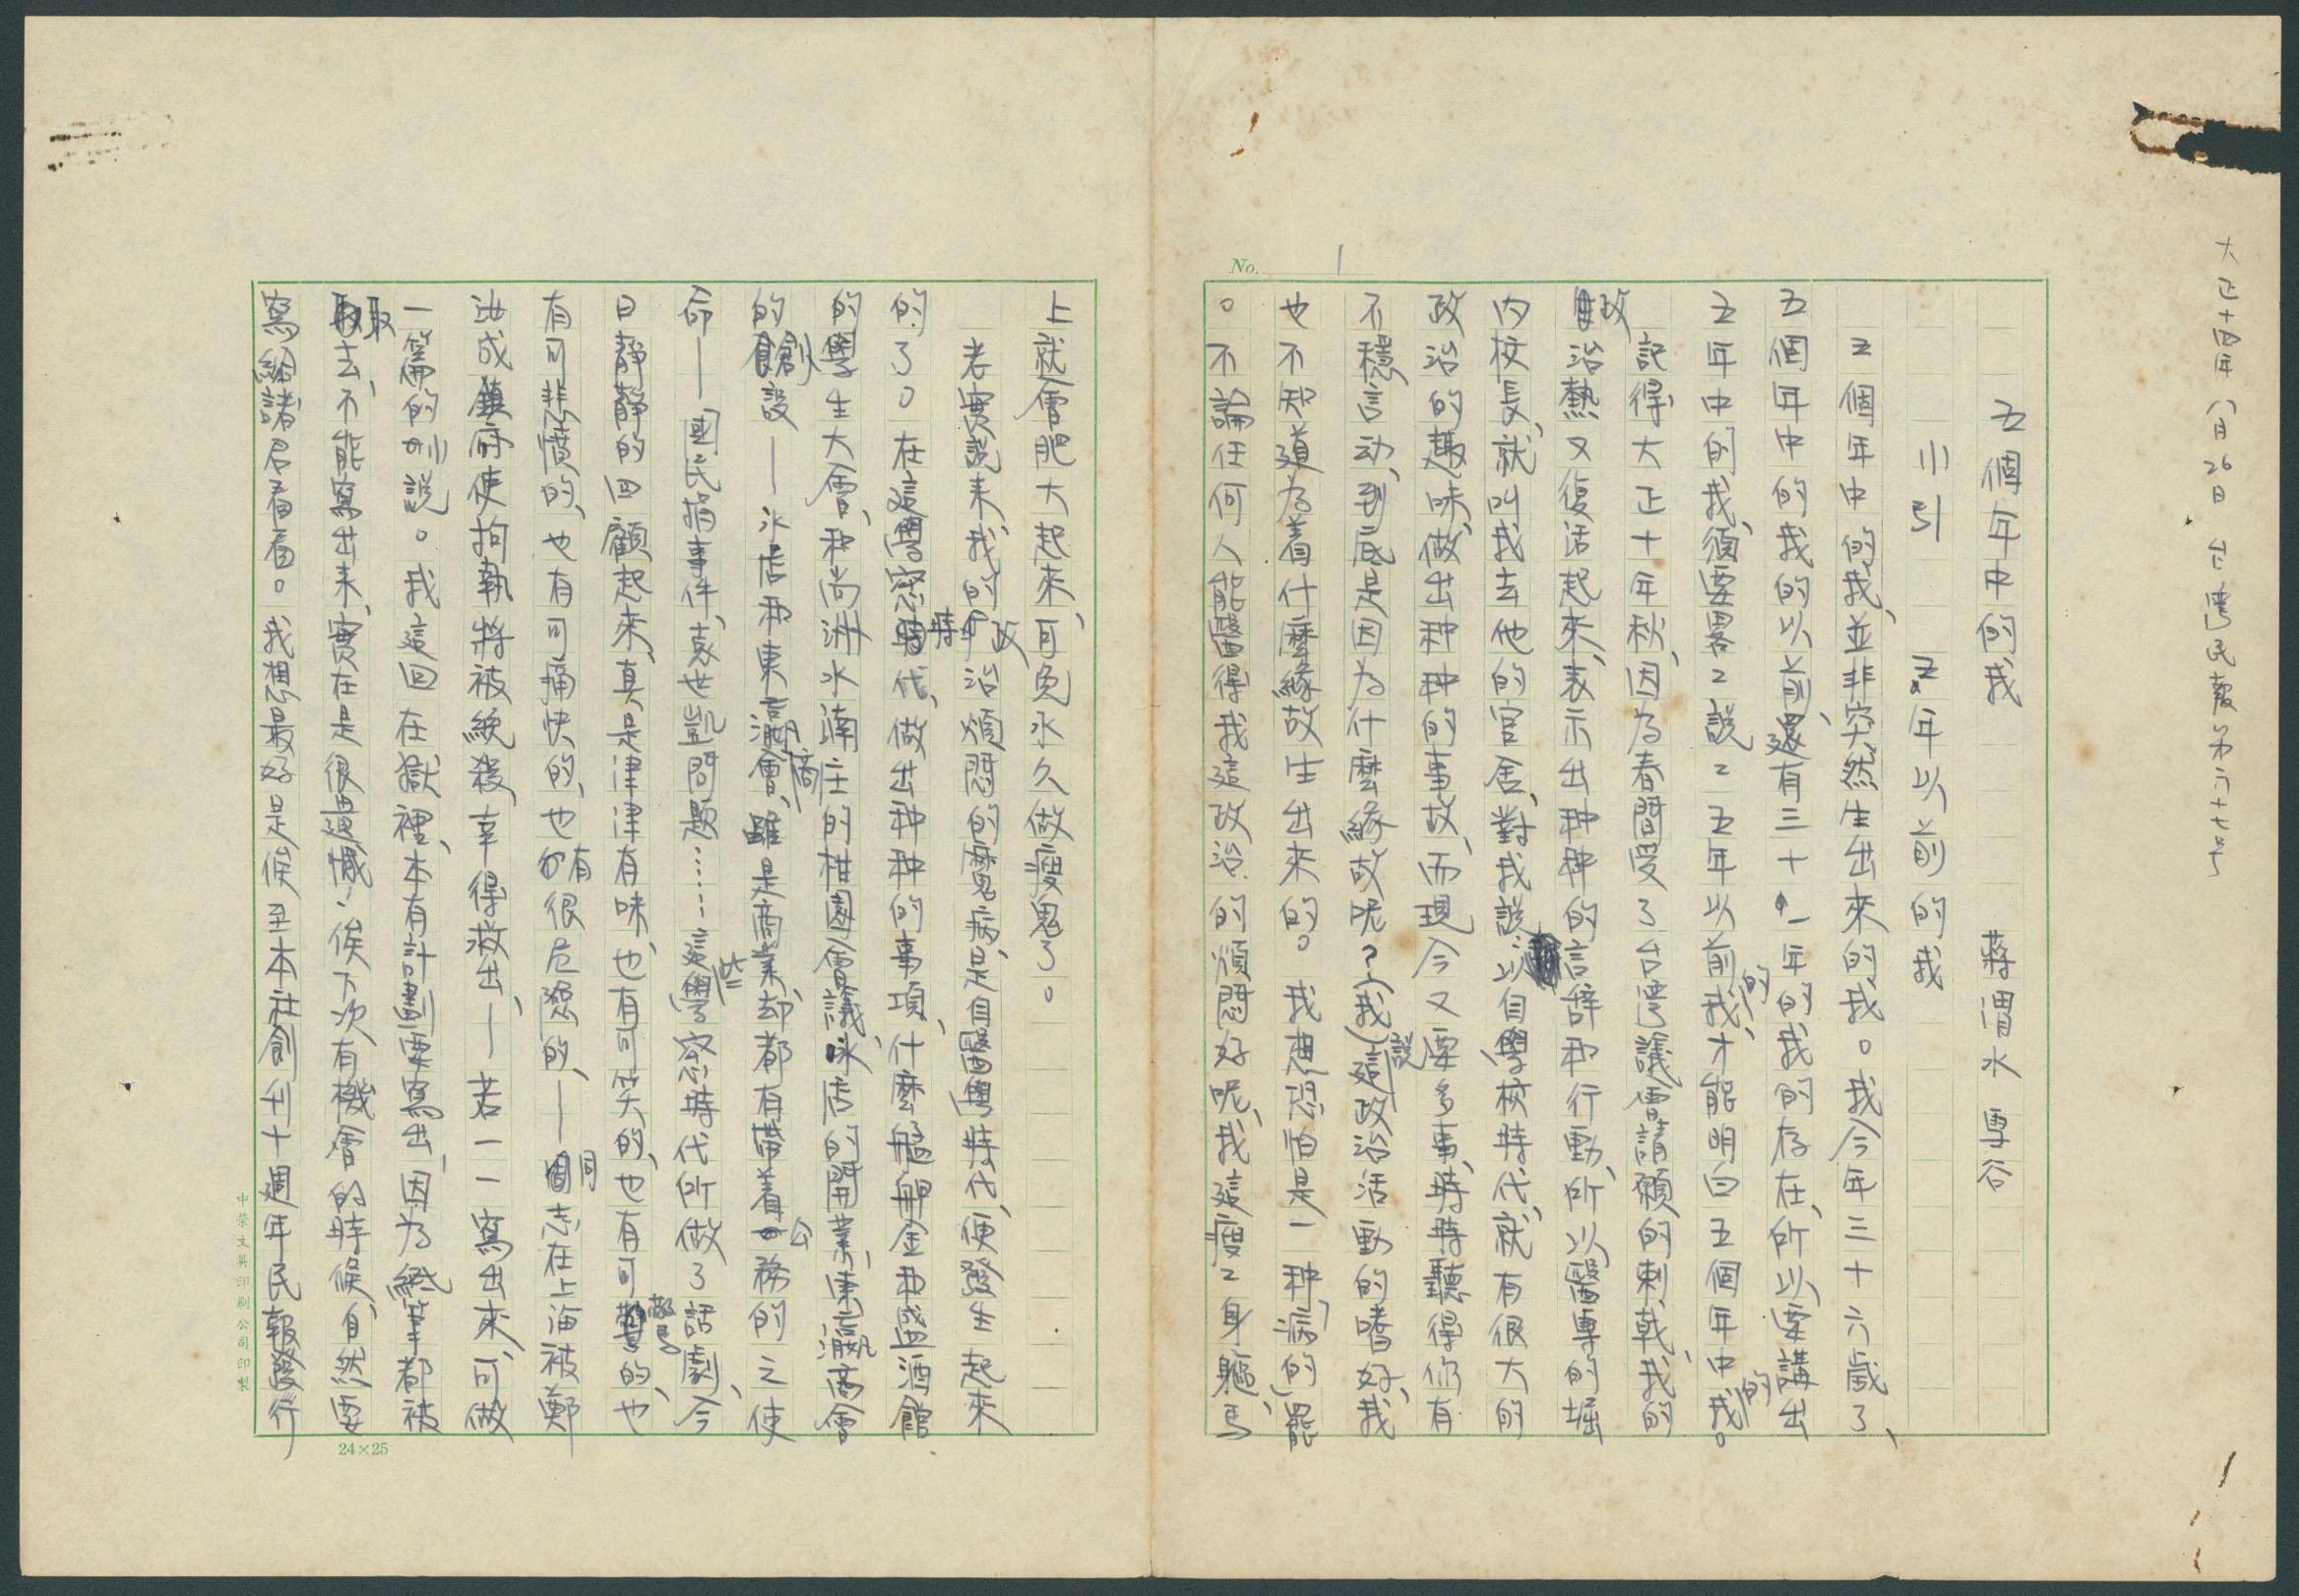 大正十四年八月26日 台灣民報第六十七号
No. 1
五個年中的我 蔣渭水 雪谷
小引 五年以前的我
五個年中的我、並非突然生出來的我。我今年三十六歲了、
五個年中的我的以前、還有三十一年的我的存在、所以、要講出
五年中的我、須要畧々說々五年以前的我、才能明白五個年中的我。
記得大正十年秋、因為春間受了台灣議會請願的刺戟、我的
政治熱又復活起來、表示出种种的言辞和行動、所以、醫專的堀
內校長、就叫我去他的官舍、對我說：以自學校時代、就有很大的
政治的趣味、做出种种的事故、而現今又要多事、時時聽得你有
不穩言动、到底是因為什麼緣故呢？我說（這政治活動的嗜好、我
也不知道為着什麼緣故生出來的。我想恐怕是一种病、的（罷
。不論任何人能醫得我這政治的煩悶好呢、我這瘦々身軀、馬
上就會肥大起來、可免永久做瘦鬼了。
老實說來、我的政治煩悶的魔病、是自醫學時代、便發生起來
的了。在這學窓時代、做出种种的事項、什麼艋舺金和盛酒館
的學生大會、和尚洲水湳庄的柑園會議、冰店的開業、東瀛商會
的創設——冰店和東瀛商會、雖是商業、却都有帶着公務的之使
命——國民捐事件、袁世凱問題………這些學窓時代所做了話劇、今
日靜靜的回顧起來、真是津津有味、也有可笑的、也有可驚的、也
有可悲憤的、也有可痛快的、也有很危險的、——同志在上海被鄭
汝成鎮府使拘執將被銃殺、幸得救出、——若一一寫出來、可做
一篇的小說。我這回在獄裡、本有計劃要寫出、因為紙筆都被
取去、不能寫出來、實在是很遺憾、俟下次有機會的時候、自然要
寫給諸君看看。我想最好是俟至本社創刊十週年民報發行
24×25
中榮文具印刷公司印製